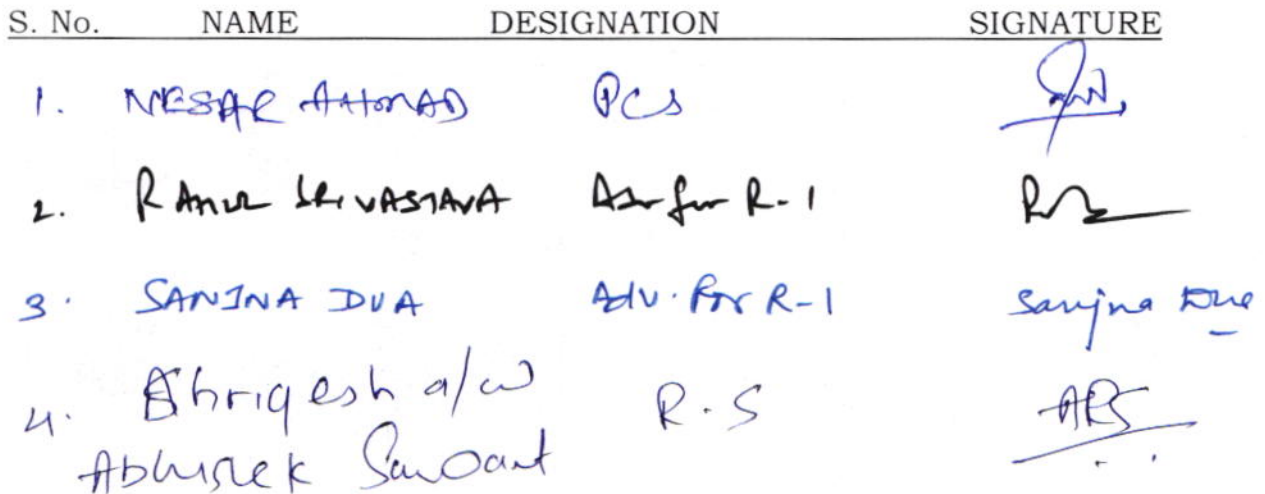 S. No. NAME DESIGNATION SIGNATURE
1. NESAR AHMAD PCS
2. RAHUL SRIVASTAVA Adv for R-1
3. SANJNA DUA Adv. for R-1 Sanjna Dua
4. a/w R.S ARS
Abhishek